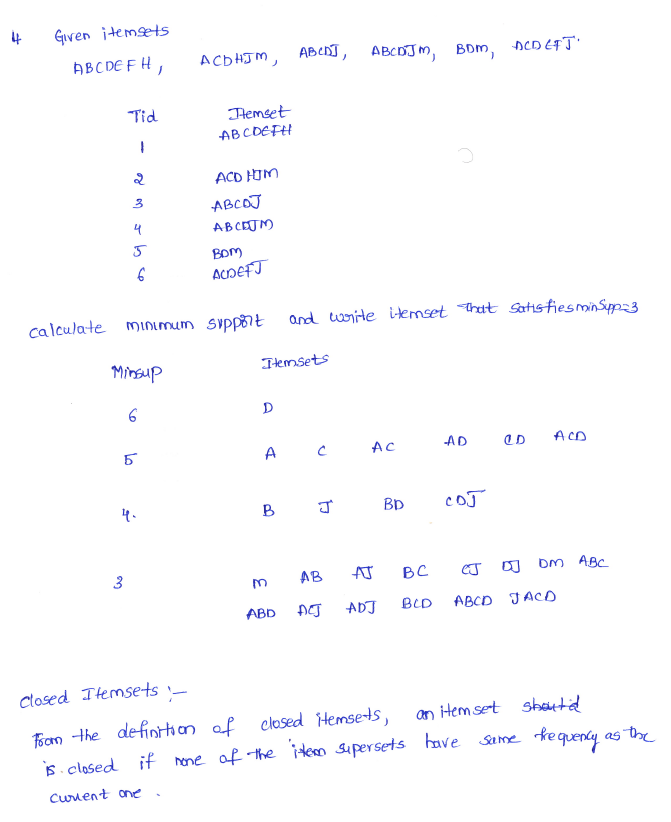 4 Given itemsets
ABCDEFH, ACDHJM, ABCDJ, ABCDJM, BDM, ACDEFJ.
Tid Itemset
1 ABCDEFH
2 ACDHJM
3 ABCDJ
4 ABCDJM
5 BDM
6 ACDEFJ
Calculate minimum support and write itemset that satisfies minSupp=3
Minsup Itemsets
6 D
5 A C AC AD CD ACD
4. B J BD CDJ
3 M AB AJ BC CJ DJ DM ABC
ABD ACJ ADJ BCD ABCD JACD
Closed Itemsets :-
From the definition of closed itemsets, an itemset should
is closed if none of the item supersets have same frequency as the
current one .